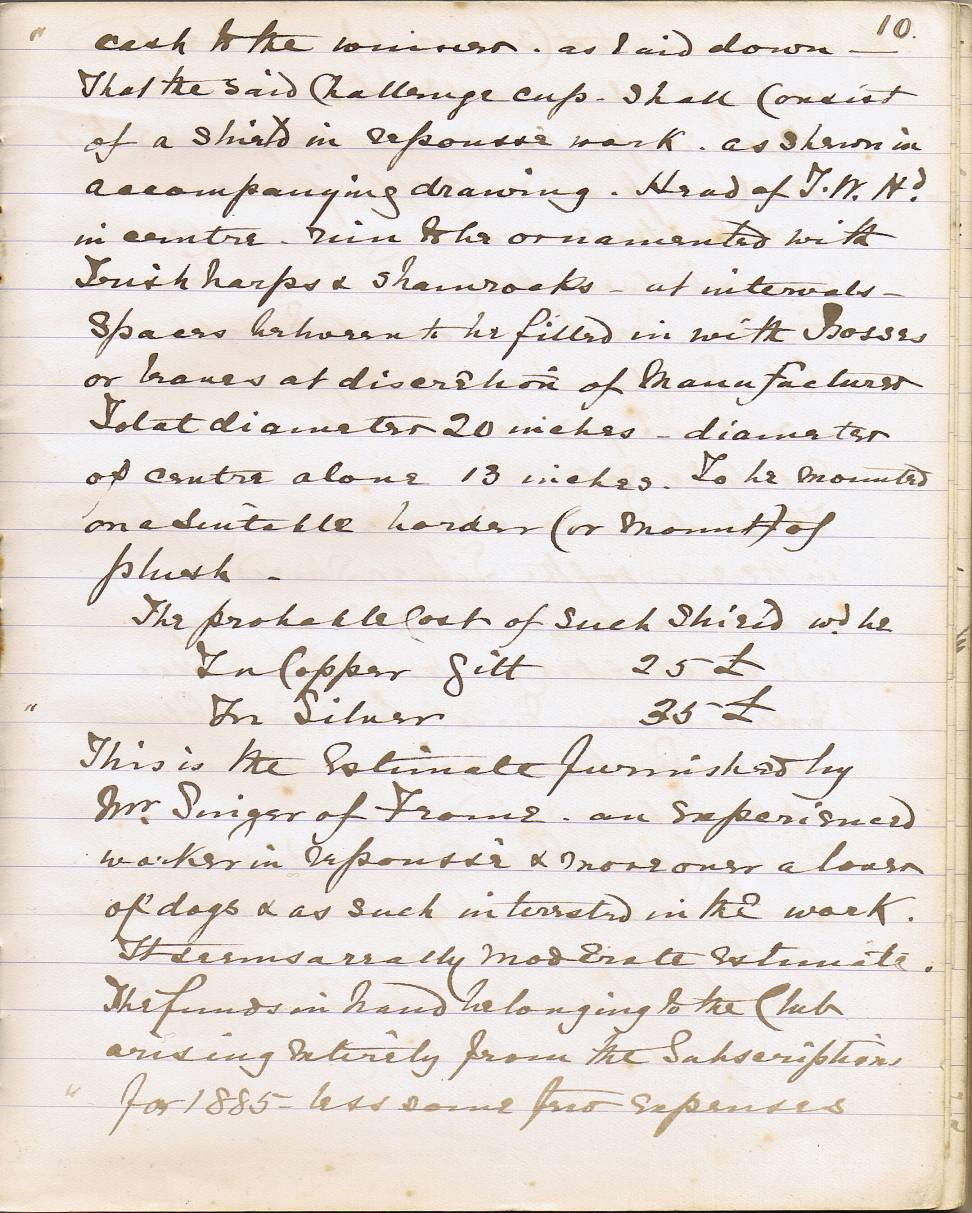 10.
" cash to the winner. as laid down —
That the said Challenge cup. shall Consist
of a Shield in repoussé work. as shewn in
accompanying drawing. Head of I. W. Hd.
in centre. rim to be ornamented with
Irish harps & shamrocks - at intervals -
Spaces between to be filled in with Bosses
or leaves at discretion of Manufacturer
Total diameter 20 inches - diameter
of centre alone 13 inches. To be mounted
on a Suitable border (or Mount) of
plush -
The probable Cost of such Shield wd. be
In Copper Gilt 25 £
" In Silver 35 £
This is the Estimate furnished by
Mr. Singer of Frome. an Experienced
worker in repoussé & moreover a lover
of dogs & as such interested in the work.
It seems a really Moderate Estimate.
The funds in hand belonging to the Club
arising Entirely from the Subscriptions
" for 1885 - less some few Expenses